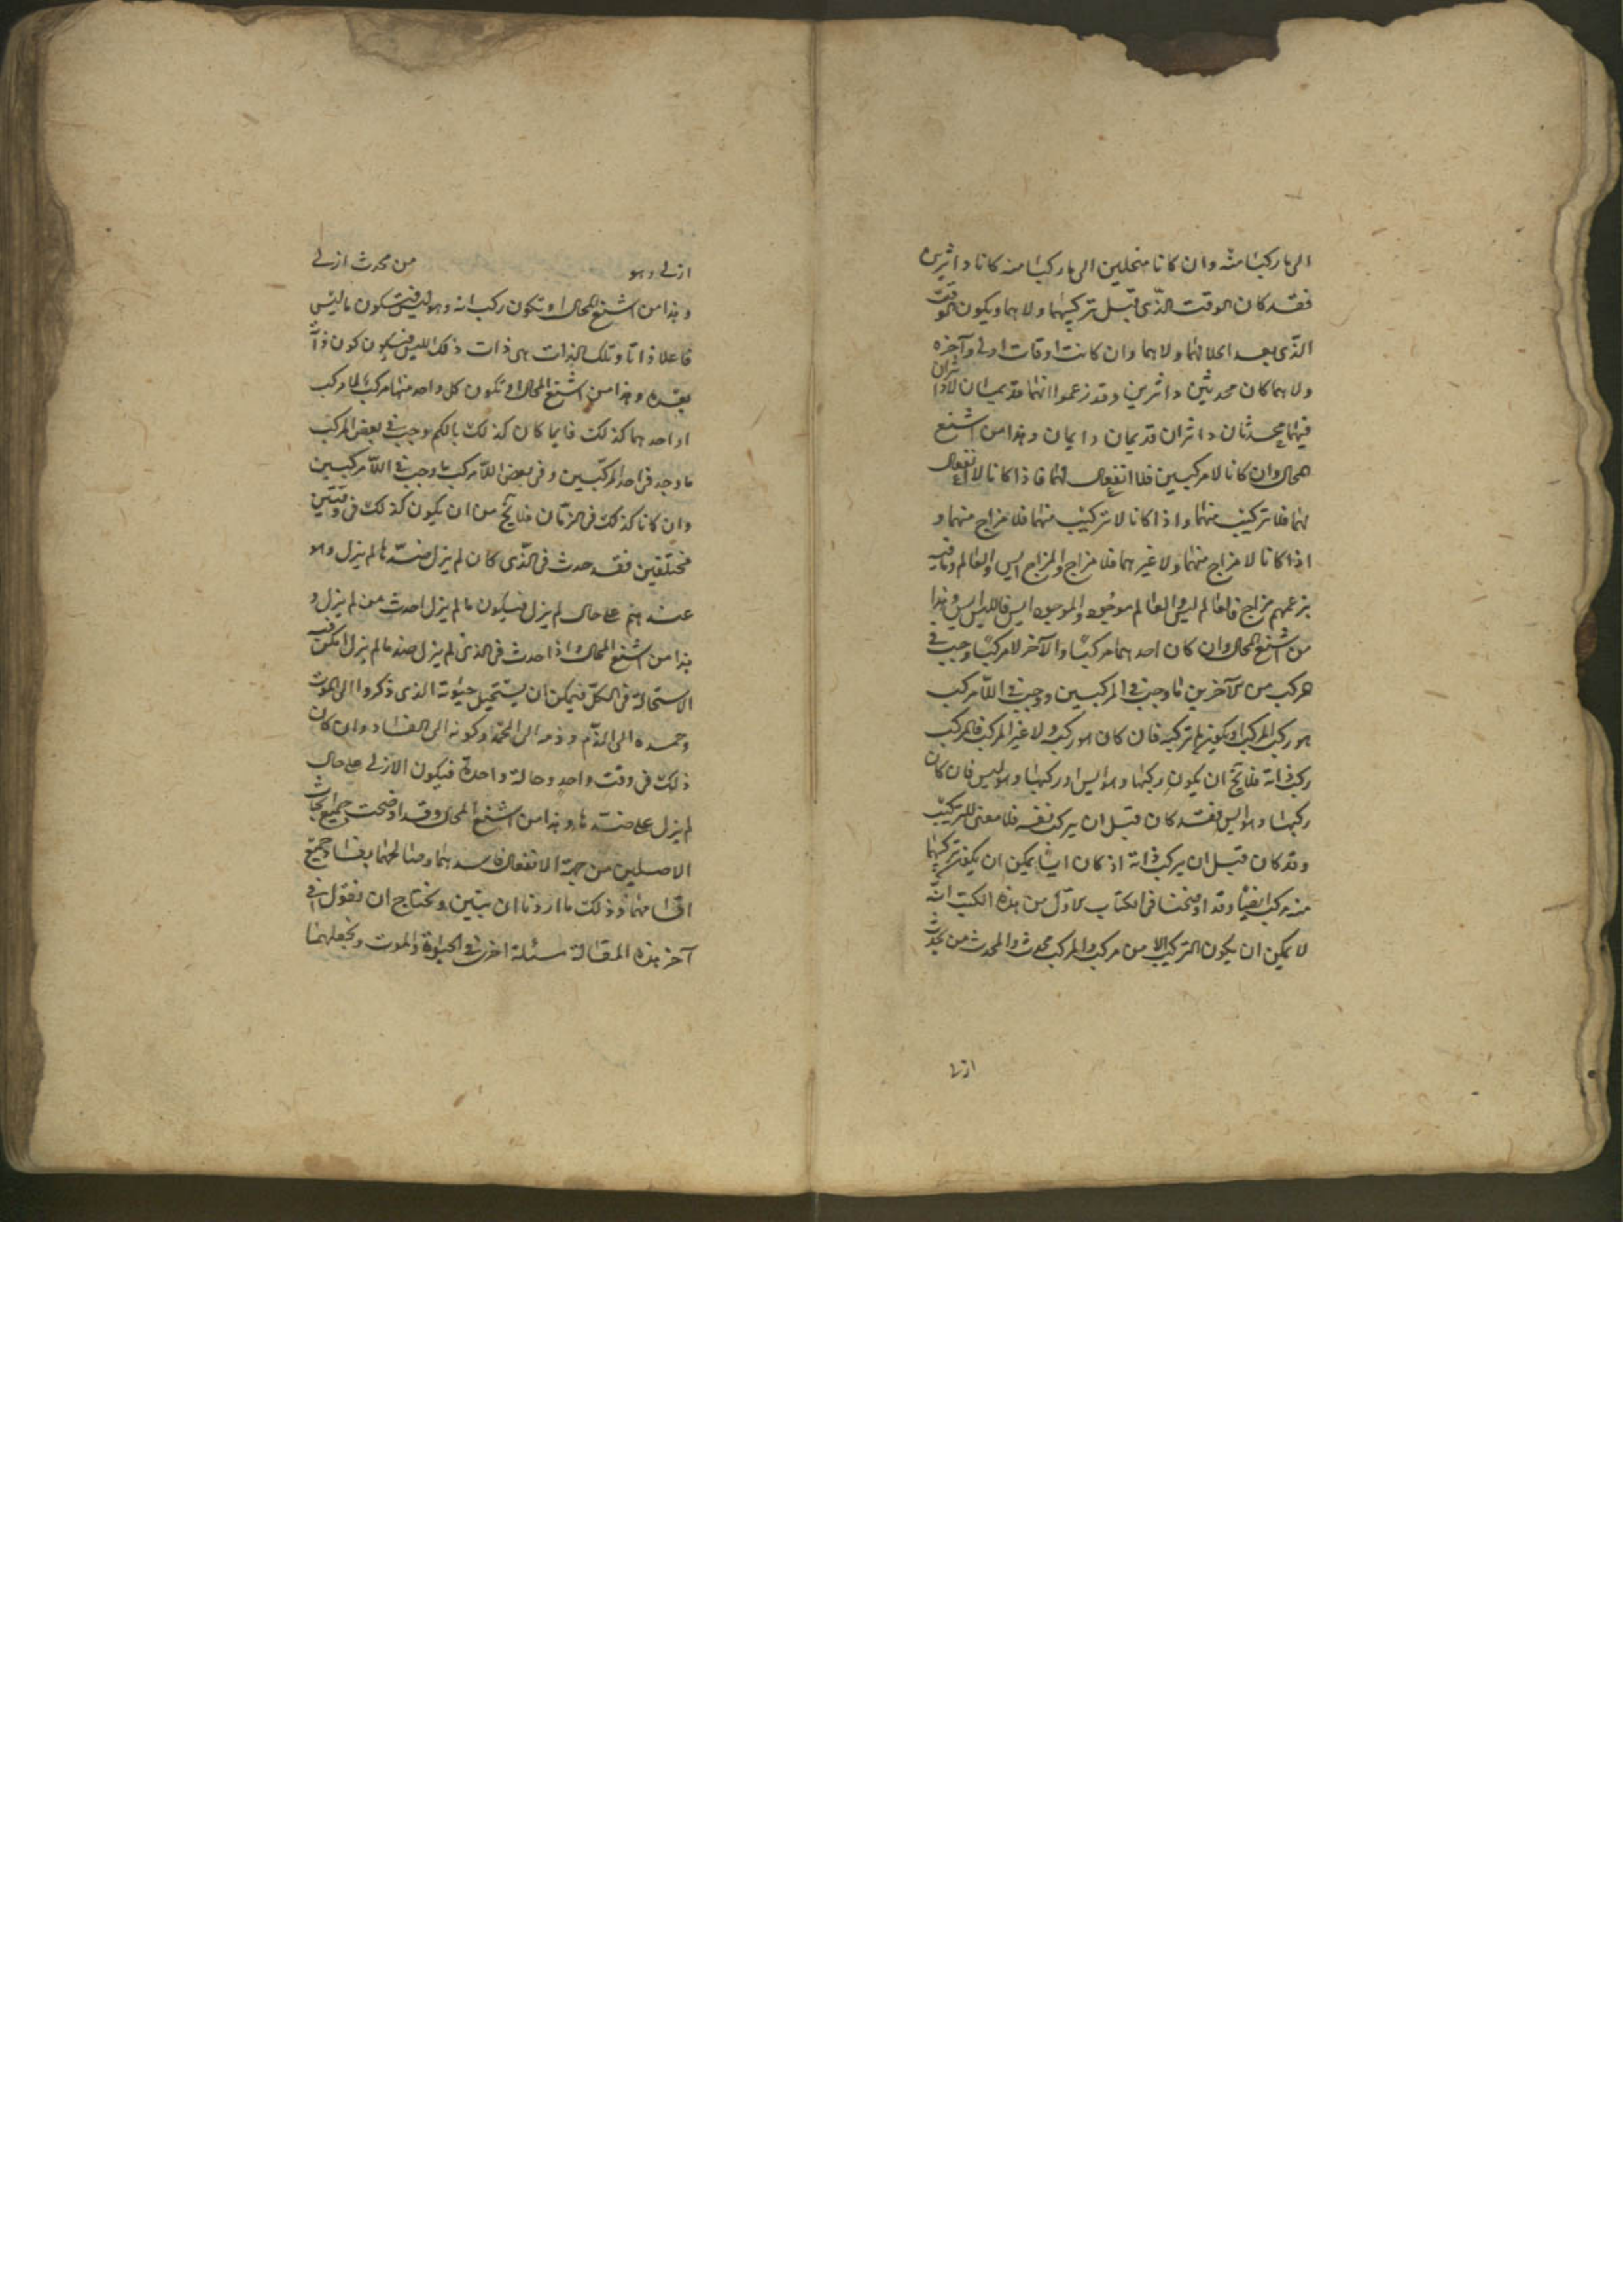 الى ما ركبا منه وان كانا منحلين الى ما ركبا منه كانا داثرين
فقد كان الوقت الذى قبل تركيبهما ولا هما ويكون الوقت
الذى بعد انحلالهما ولا هما وان كانت اوقات اولى وآخره
ولا هما كان محدثين داثرين وقد زعموا انهما قديمان لاداثران
فيهما محدثان داثران قديمان دايمان وهذا من اشنع
المحال وان كانا لا مركبين فلا انفعال لهما فاذا كانا لا انفعال
لهما فلا تركيب منهما واذا كانا لا تركيب منهما فلا مزاج منهما و
اذا كانا لا مزاج منهما ولا غير هما فلا مزاج والمزاج ايس والعالم وما فيه
بزعمهم مزاج فالعالم ليس والعالم موجود والموجود ايس فالليس ايس وهذا
من اشنع المحال وان كان احد هما مركبا والآخر لا مركبا وجب فى
مركب من الآخرين ما وجب فى المركبين ووجب فى اللا مركب
هو ركب المركب او يكون غيرها تركيبه فان كان هو ركبه ولا غير المركب فالمركب
ركب ذاته فلا يخ ان يكون ركبها وهو ايس او ركبها وهو ليس فان كان
ركبها وهو ايس فقد كان قبل ان يركب نفسه فلا معنى للتركيب
وقد كان قبل ان يركب ذاته اذ كان ايسا يمكن ان يكون تركيبها
منه مركب ايضا وقد اوضحنا فى الكتاب الاول من هذه الكتب انه
لا يمكن ان يكون التركيب الا من مركب والمركب محدث والمحدث من محدث
ازلى
ازلى وهو من محدث ازلى
وهذا من اشنع المحال او تكون ركب ذاته وهو ليس فيكون ما ليس
فاعلا ذاتا وتلك الذات هى ذات ذلك الليس فيكون كون ذاته
بعده وهذا من اشنع المحال او تكون كل واحد منهما مركب لا مركب
او احد هما كذلك فايما كان كذلك بالكم وجب فى بعض المركب
ما وجد فى احد المركبين وفى بعض اللا مركب ما وجب فى اللا مركبين
وان كانا كذلك فى الزمان فلا يخ من ان يكون كذلك فى وقتين
مختلفين فقد حدث فى الذى كان لم يزل ضد ما لم يزل وهو
عندهم على حال لم يزل فيكون ما لم يزل احدث من لم يزل و
هذا من اشنع المحال واذا حدث فى الذى لم يزل ضد ما لم يزل امكن فيه
الاستحالة فى الكل فيمكن ان يستحيل حيوته الذى ذكروا الى الموت
وحمده الى الذم وذمه الى الحمد وكونه الى الفساد وان كان
ذلك فى وقت واحد وحالة واحدة فيكون الازلى على حال
لم يزل على ضدها وهذا من اشنع المحال وقد اوضحت جميع ابحاث
الاصلين من جهة الانفعال فاسدهما وصالحهما بفساد جميع
اقسامهما وذلك ما اردنا ان نبين ونحتاج ان نقول فى
آخر هذه المقالة مسئلة اخرى فى الحيوة والموت ونجعلهما